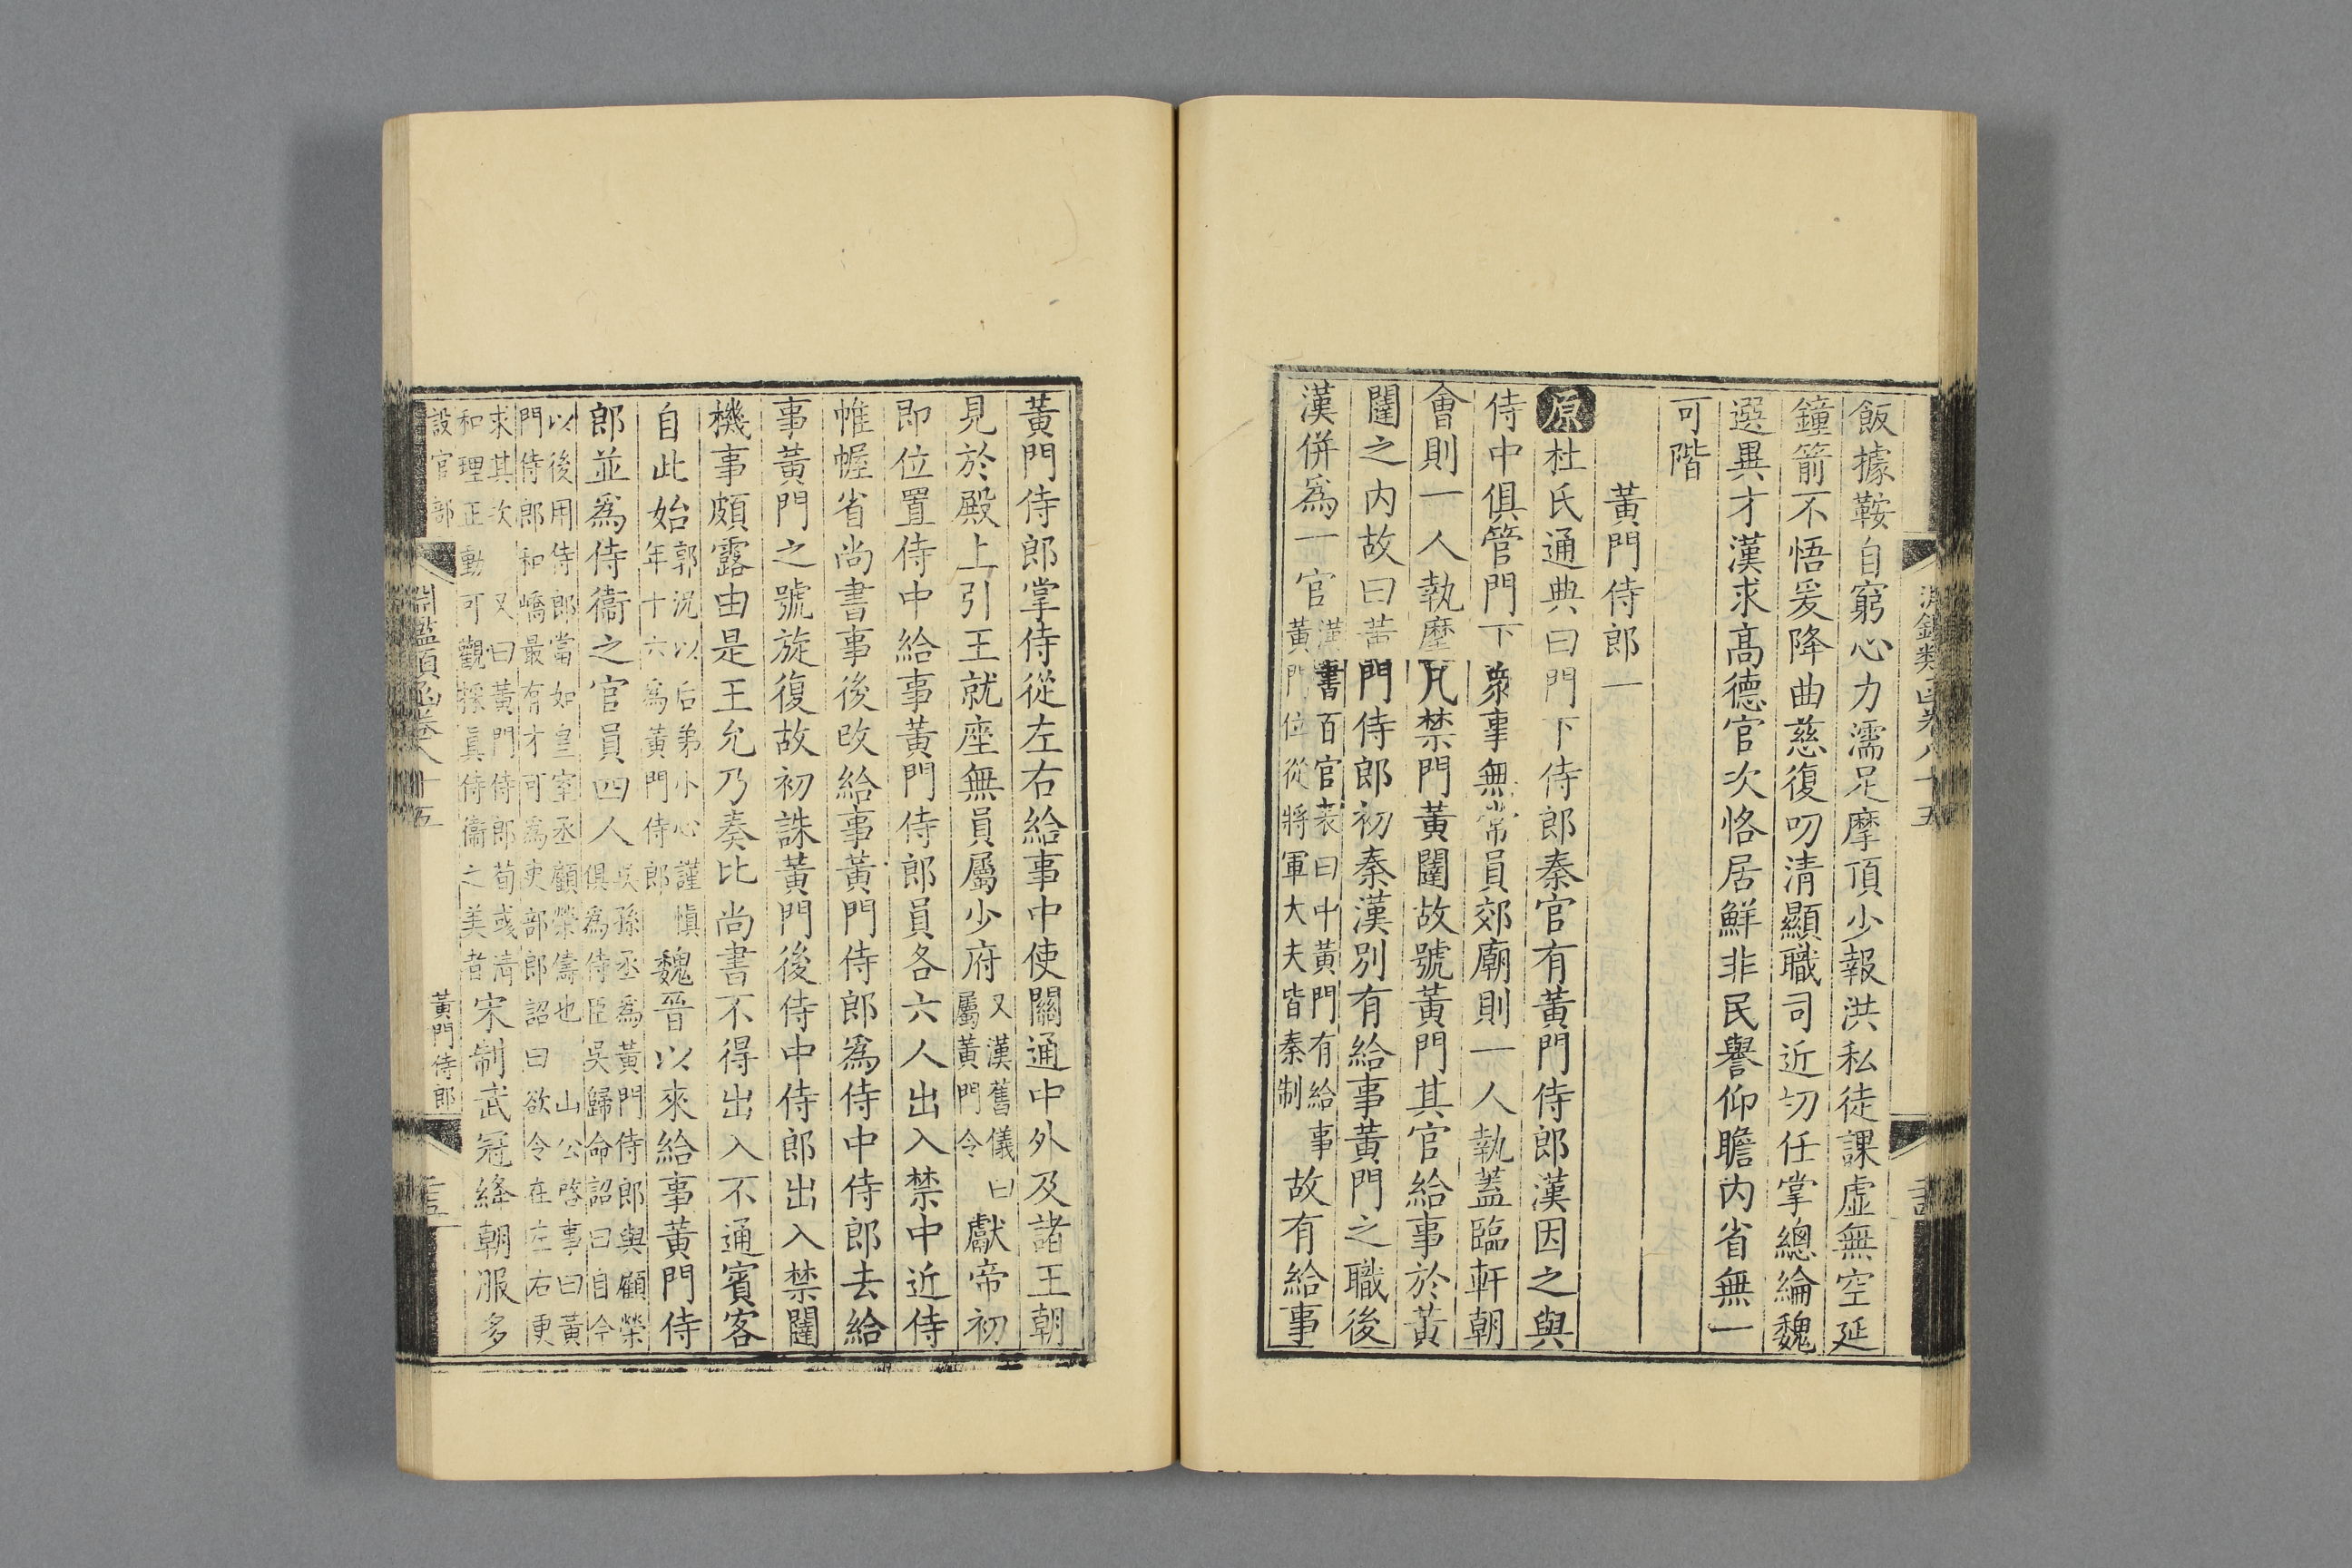 飯據鞍自窮心力濡足摩頂少報洪私徒課虛無空延
鐘箭不悟爰降曲慈復叨清顯職司近切任掌總綸魏
選異才漢求高德官次恪居鮮非民譽仰瞻内省無一
可階
黃門侍郎一
原杜氏通典曰門下侍郎秦官有黃門侍郎漢因之與
侍中俱管門下衆事無常員郊廟則一人執蓋臨軒朝
會則一人執麾凡禁門黃闥故號黃門其官給事於黃
闥之内故曰黃門侍郎初秦漢別有給事黃門之職後
漢併爲一官
漢書百官表曰中黃門有給事
黃門位從將軍大夫皆秦制
故有給事
黃門侍郎掌侍從左右給事中使關通中外及諸王朝
見於殿上引王就座無員屬少府
又漢舊儀曰
屬黃門令
獻帝初
即位置侍中給事黃門侍郎員各六人出入禁中近侍
帷幄省尚書事後改給事黃門侍郎爲侍中侍郎去給
事黃門之號旋復故初誅黃門後侍中侍郎出入禁闥
機事頗露由是王允乃奏比尚書不得出入不通賓客
自此始
郭況以后弟小心謹慎
年十六爲黃門侍郎
魏晉以來給事黃門侍
郎並爲侍衞之官員四人
吳孫丞爲黃門侍郎與顧榮
俱爲侍臣吳歸命詔曰自今
以後用侍郎當如皇室丞顧榮儔也
山公啓事曰黃
門侍郎和嶠最有才可爲吏部郎詔曰欲令在左右更
求其次
又曰黃門侍郎荀彧清
和理正動可觀採真侍衞之美者
宋制武冠絳朝服多
設官部
淵鑑類函卷八十五
黃門侍郎
淵鑑類函卷八十五